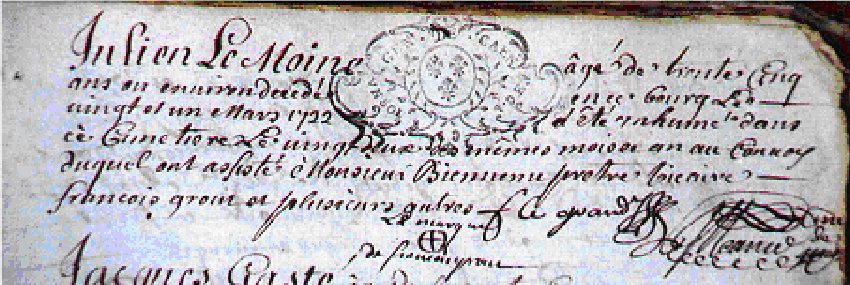 Julien Le Moine âgé de trente cinq
ans ou environ decedé en ce bourg Le
vingt et un Mars 1722 a été inhumé dans
ce Cimetiere Le vingt deux des mêmes mois et an au Convoy
duquel ont assisté Monsieur Bienvenu pretre
françois et plusieurs autres Le grand
La marque
de
Jacques Gasté